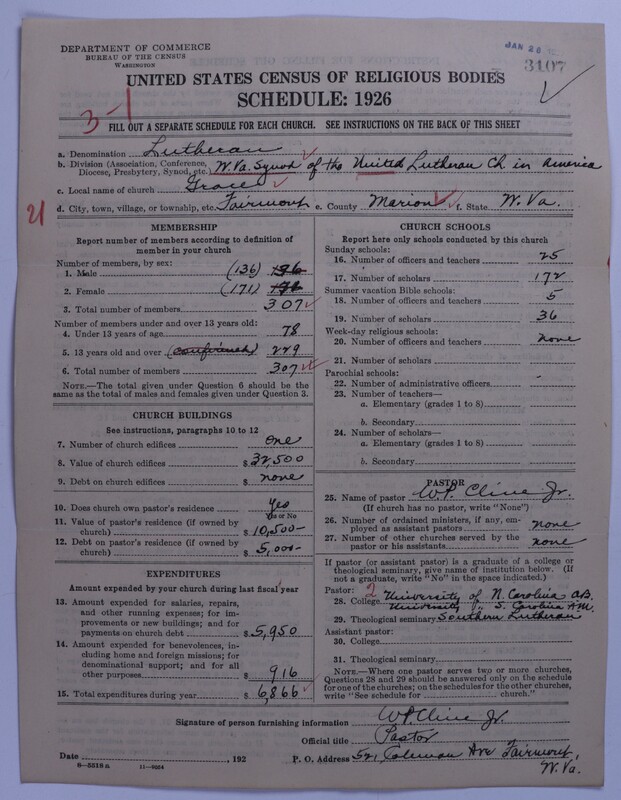 DEPARTMENT OF COMMERCE
BUREAU OF THE CENSUS
WASHINGTON
JAN 28
3107
UNITED STATES CENSUS OF RELIGIOUS BODIES
SCHEDULE: 1926
3-1
FILL OUT A SEPARATE SCHEDULE FOR EACH CHURCH. SEE INSTRUCTIONS ON THE BACK OF THIS SHEET
a. Denomination Lutheran
b. Division (Association, Conference, Diocese, Presbytery, Synod, etc.) W. Va. Synod of the United Lutheran Ch. in America
c. Local name of church Grace
21
d. City, town, village, or township, etc. Fairmont e. County Marion f. State W. Va.
MEMBERSHIP
Report number of members according to definition of
member in your church
Number of members, by sex:
1. Male (136)
2. Female (171)
3. Total number of members 307
Number of members under and over 13 years old:
4. Under 13 years of age 78
5. 13 years old and over (confirmed) 229
6. Total number of members 307
NOTE.—The total given under Question 6 should be
same as the total of males and females given under Question 3.
CHURCH BUILDINGS
See instructions, paragraphs 10 to 12
7. Number of church edifices one
8. Value of church edifices $ 32,500
9. Debt on church edifices $ none
10. Does church own pastor's residence? Yes
Yes or No
11. Value of pastor's residence (if owned by
church) $ 10,500-
12. Debt on pastor's residence (if owned by
church) $ 5,000-
EXPENDITURES
Amount expended by your church during last fiscal year
13. Amount expended for salaries, repairs,
and other running expenses; for im-
provements or new buildings; and for
payments on church debt $ 5,950
14. Amount expended for benevolences, in-
cluding home and foreign missions; for
denominational support; and for all
other purposes $ 916
15. Total expenditures during year $ 6,866
CHURCH SCHOOLS
Report here only schools conducted by this church
Sunday schools:
16. Number of officers and teachers 25
17. Number of scholars 172
Summer vacation Bible schools:
18. Number of officers and teachers 5
19. Number of scholars 36
Week-day religious schools:
20. Number of officers and teachers none
21. Number of scholars
Parochial schools:
22. Number of administrative officers
23. Number of teachers—
a. Elementary (grades 1 to 8)
b. Secondary
24. Number of scholars—
a. Elementary (grades 1 to 8)
b. Secondary
PASTOR
25. Name of pastor W.P. Cline Jr.
(If church has no pastor, write "None")
26. Number of ordained ministers, if any, em-
ployed as assistant pastors none
27. Number of other churches served by the
pastor or his assistants none
If pastor (or assistant pastor) is a graduate of a college or
theological seminary, give name of institution below. (If
not a graduate, write "No" in the space indicated.)
Pastor: 2
28. College University of N. Carolina A.B.
University " S. Carolina A.M.
29. Theological seminary Southern Lutheran
Assistant pastor:
30. College
31. Theological seminary
NOTE.—Where one pastor serves two or more churches,
Questions 28 and 29 should be answered only on the schedule
for one of the churches; on the schedules for the other churches,
write "See schedule for church."
Signature of person furnishing information W.P. Cline Jr.
Official title Pastor
Date , 192 P. O. Address 521 Coleman Ave Fairmont,
W. Va.
6—5519 a 11—9264